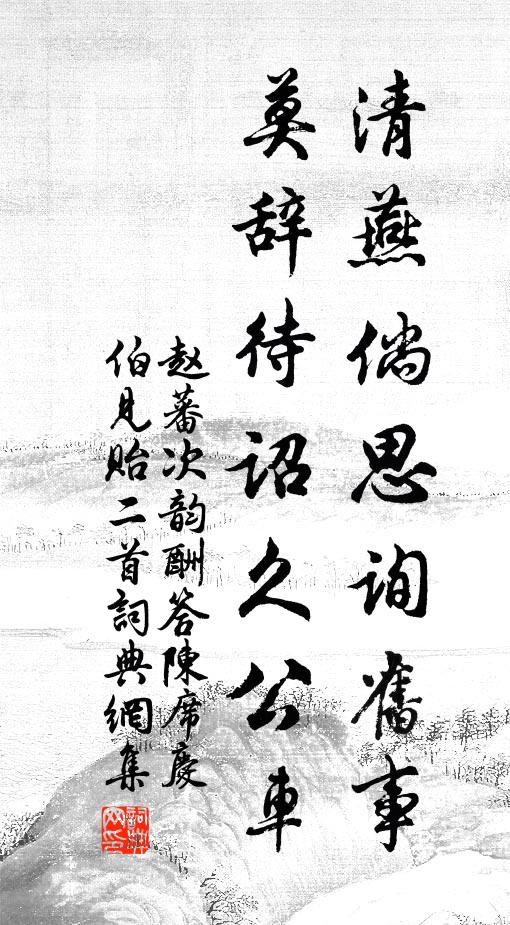 清燕倘思询舊事
莫辞待诏久公車
赵蕃次韵酬答陳席慶
伯見贻二首詞典網集